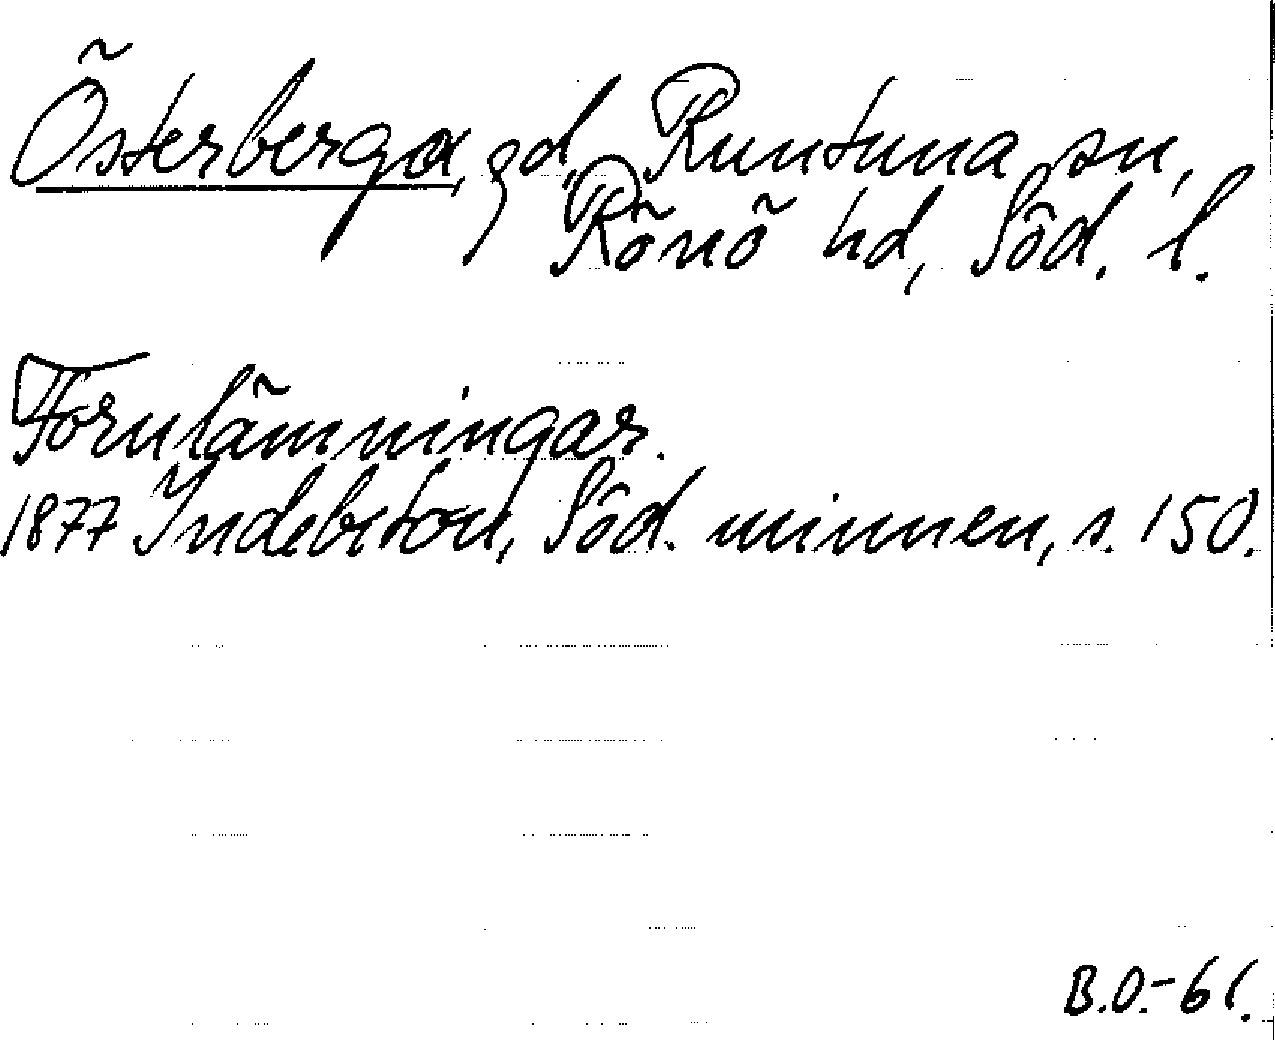 Österberga, gd, Runtuna sn,
Rönö hd, Söd. l.
Fornlämningar.
1877 Indebetou, Söd. minnen, s. 150.
B.O.-61.